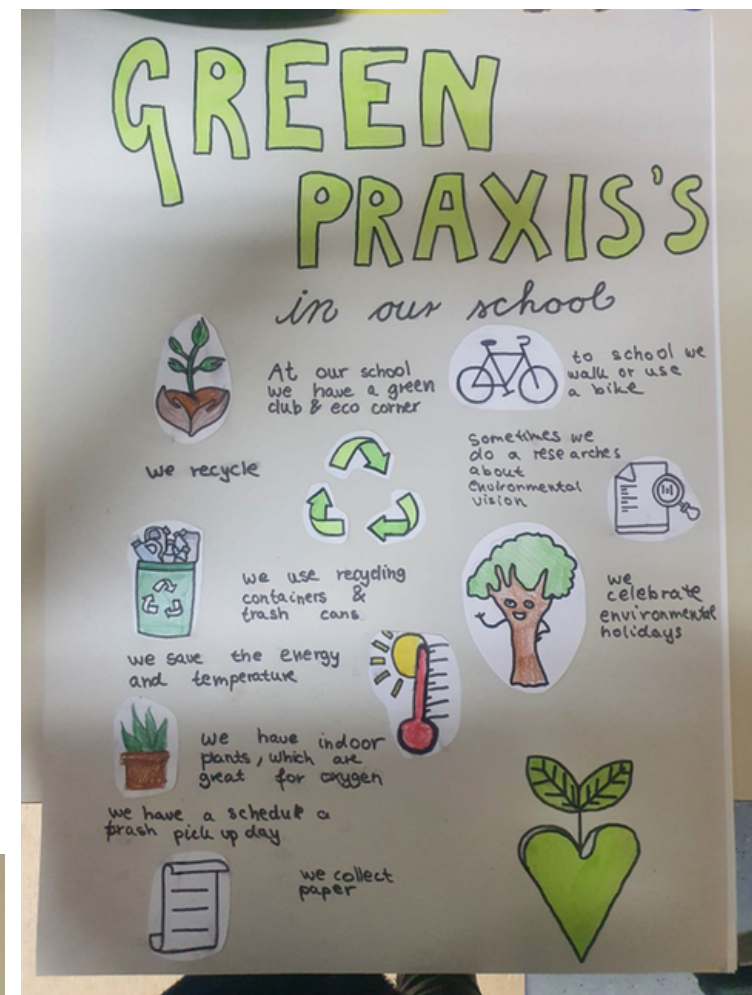 GREEN
PRAXIS'S
in our school
At our school
we have a green
club & eco corner
to school we
walk or use
a bike
we recycle
Sometimes we
do a researches
about
environmental
vision
we use recycling
containers &
trash cans
we celebrate
environmental
holidays
we save the energy
and temperature
we have indoor
plants, which are
great for oxygen
we have a schedule a
prash pick up day
we collect
paper